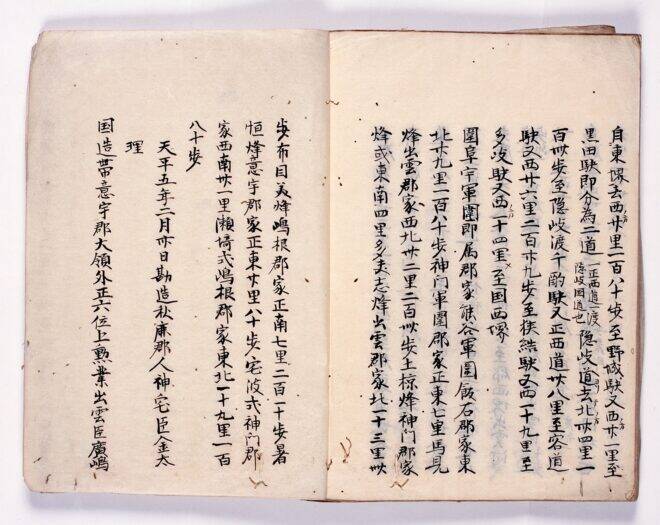 自東堺去西廿里一百八十歩至野城駅又西廿一里至
黒田駅即分為二道 一正西道一渡隠岐国道也 隠岐道去北卅四里一
百卌歩至隠岐渡千酌駅又正西道卅八里至宍道
駅又西廿六里二百廿九歩至狭結駅又西一十九里至
多岐駅又西一十四里至国西堺
團阜宇軍團即属郡家熊谷軍團飯石郡家東
北廿九里一百八十歩神門軍團郡家正東七里馬見
烽出雲郡家西北卅二里二百卌歩土椋烽神門郡家
烽或東南四里多夫志烽出雲郡家北一十三里卌
歩布自美烽嶋根郡家正南七里二百一十歩暑
恒烽意宇郡家正東廿里八十歩宅波弍神門郡
家西南卅一里瀬埼弍嶋根郡家東北一十九里一百
八十歩
天平五年二月卅日勘造秋鹿郡人神宅臣金太
理
国造帯意宇郡大領外正六位上勲業出雲臣廣嶋